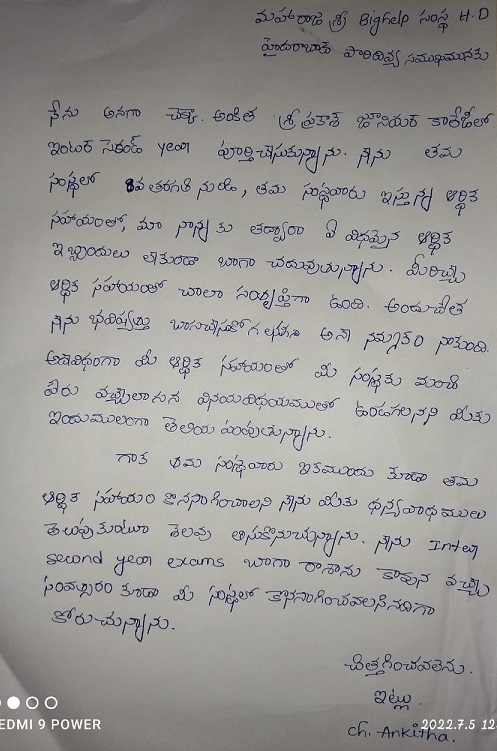 మహారాజ శ్రీ Bighelp సంస్థ H.D
హైదరాబాదు పారిదివ్య సముఖమునకు
నేను అనగా చెక్కా. అంకిత శ్రీ ప్రకాశ్ జూనియర కాలేజీలో
ఇంటర సెకండ్ year పూర్తిచేసుకున్నాను. నేను తమ
సంస్థలో 8వ తరగతి నుండి, తమ సంస్థవారు ఇస్తున్న ఆర్థిక
సహాయంతో, మా నాన్నకు తద్వారా ఏ విధమైన ఆర్థిక
ఇబ్బందులు లేకుండా బాగా చదువుతున్నాను. మీరిచ్చు
ఆర్థిక సహాయంతో చాలా సంతృప్తిగా ఉంది. అందుచేత
నేను భవిష్యత్తు బాగుచేసుకోగలను అనే నమ్మకం నాకుంది.
అదేవిధంగా మీ ఆర్థిక సహాయంతో మీ సంస్థకు మంచి
పేరు వచ్చేలాగున వినయవిధయముతో ఉండగలనని మీకు
ఇందుమూలంగా తెలియపరుస్తున్నాను.
గాక తమ సంస్థవారు ఇకముందు కూడా తమ
ఆర్థిక సహాయం కొనసాగించాలని నేను మీకు ధన్యవాధములు
తెలుపుకుంటూ శెలవు తీసుకొనుచున్నాను. నేను Inter
second year exams బాగా రాశాను కావున వచ్చే
సంవత్సరం కూడా మీ సంస్థలో కొనసాగించవలసినదిగా
కోరుచున్నాను.
చిత్తగించవలెను.
ఇట్లు.
ch. Ankitha.
EDMI 9 POWER
2022.7.5 12